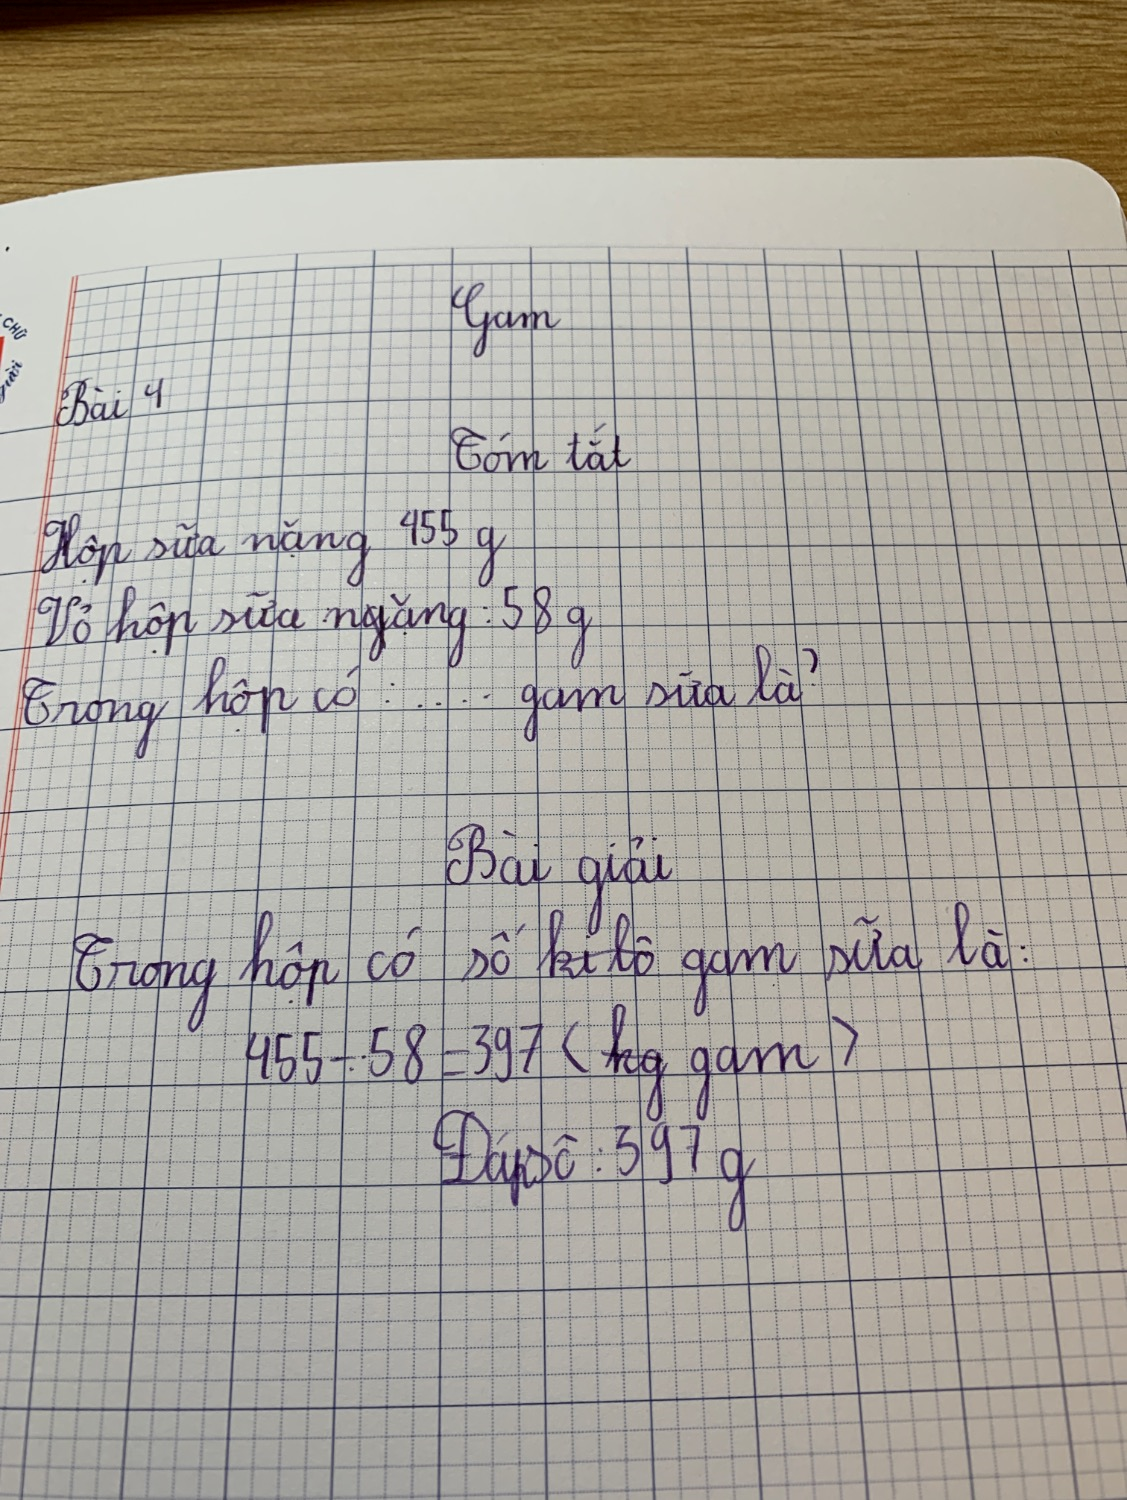 CHỮ
Gam
Bài 4
Tóm tắt
Hộp sữa nặng 455 g
Vỏ hộp sữa ngặng : 58 g
Trong hộp có : ..... gam sữa là?
Bài giải
Trong hộp có số ki lô gam sữa là:
455 - 58 = 397 ( kg gam )
Đáp sô : 397 g